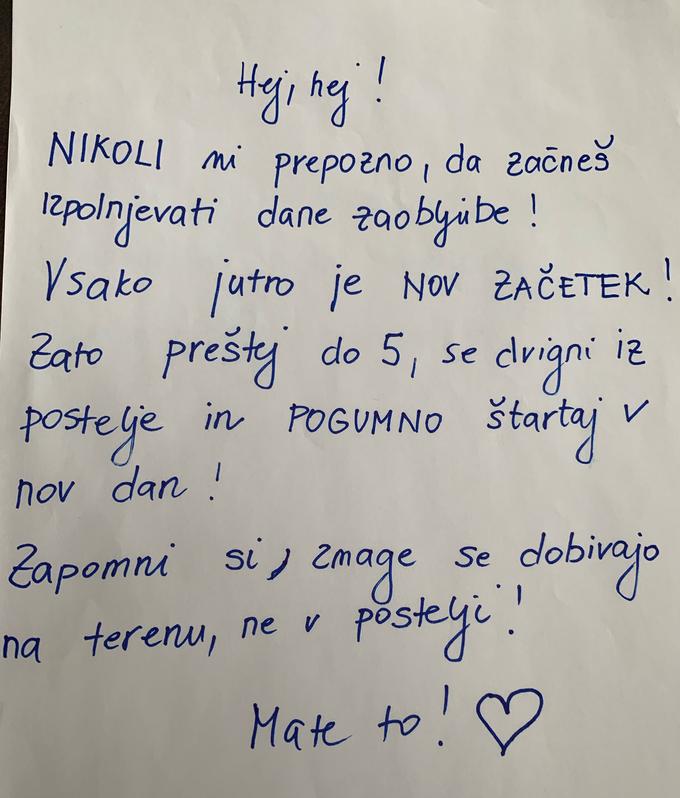 Hej, hej!
NIKOLI ni prepozno, da začneš
izpolnjevati dane zaobljube!
Vsako jutro je NOV ZAČETEK!
Zato preštej do 5, se dvigni iz
postelje in POGUMNO štartaj v
nov dan!
Zapomni si, zmage se dobivajo
na terenu, ne v postelji!
Mate to! ♡